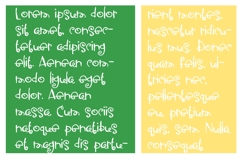 Lorem ipsum dolor
sit amet, consec-
tetuer adipiscing
elit. Aenean com-
modo ligula eget
dolor. Aenean
massa. Cum sociis
natoque penatibus
et magnis dis partu-
rient montes,
nascetur ridicu-
lus mus. Donec
quam felis, ul-
tricies nec,
pellentesque
eu, pretium
quis, sem. Nulla
consequat